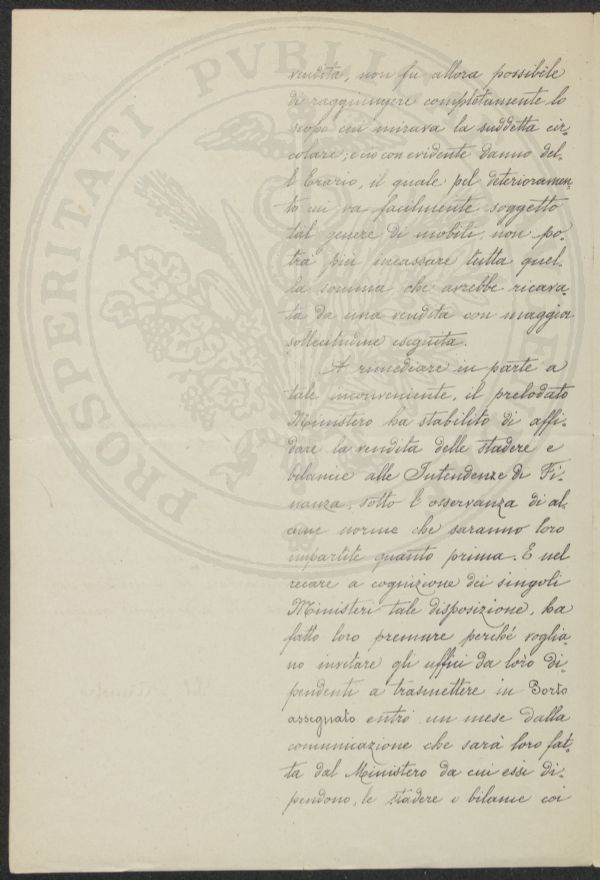 PROSPERITATI PVBLI
vendita, non fu allora possibile
di raggiungere completamente lo
scopo cui mirava la suddetta cir-
colare; e ciò con evidente danno del-
l'Erario, il quale pel deterioramen-
to cui va facilmente soggetto
tal genere di mobili, non po-
trà più incassare tutta quel-
la somma che avrebbe ricava-
ta da una vendita con maggior
sollecitudine eseguita.
A rimediare in parte a
tale inconveniente, il prelodato
Ministero ha stabilito di affi-
dare la vendita delle stadere e
bilancie alle Intendenze di Fi-
nanza, sotto l'osservanza di al-
cune norme che saranno loro
impartite quanto prima. E nel
recare a cognizione dei singoli
Ministeri tale disposizione, ha
fatto loro premure perché voglia-
no invitare gli uffici da loro di-
pendenti a trasmettere in Porto
assegnato entro un mese dalla
comunicazione che sarà loro fat-
ta dal Ministero da cui essi di-
pendono, le stadere e bilancie coi